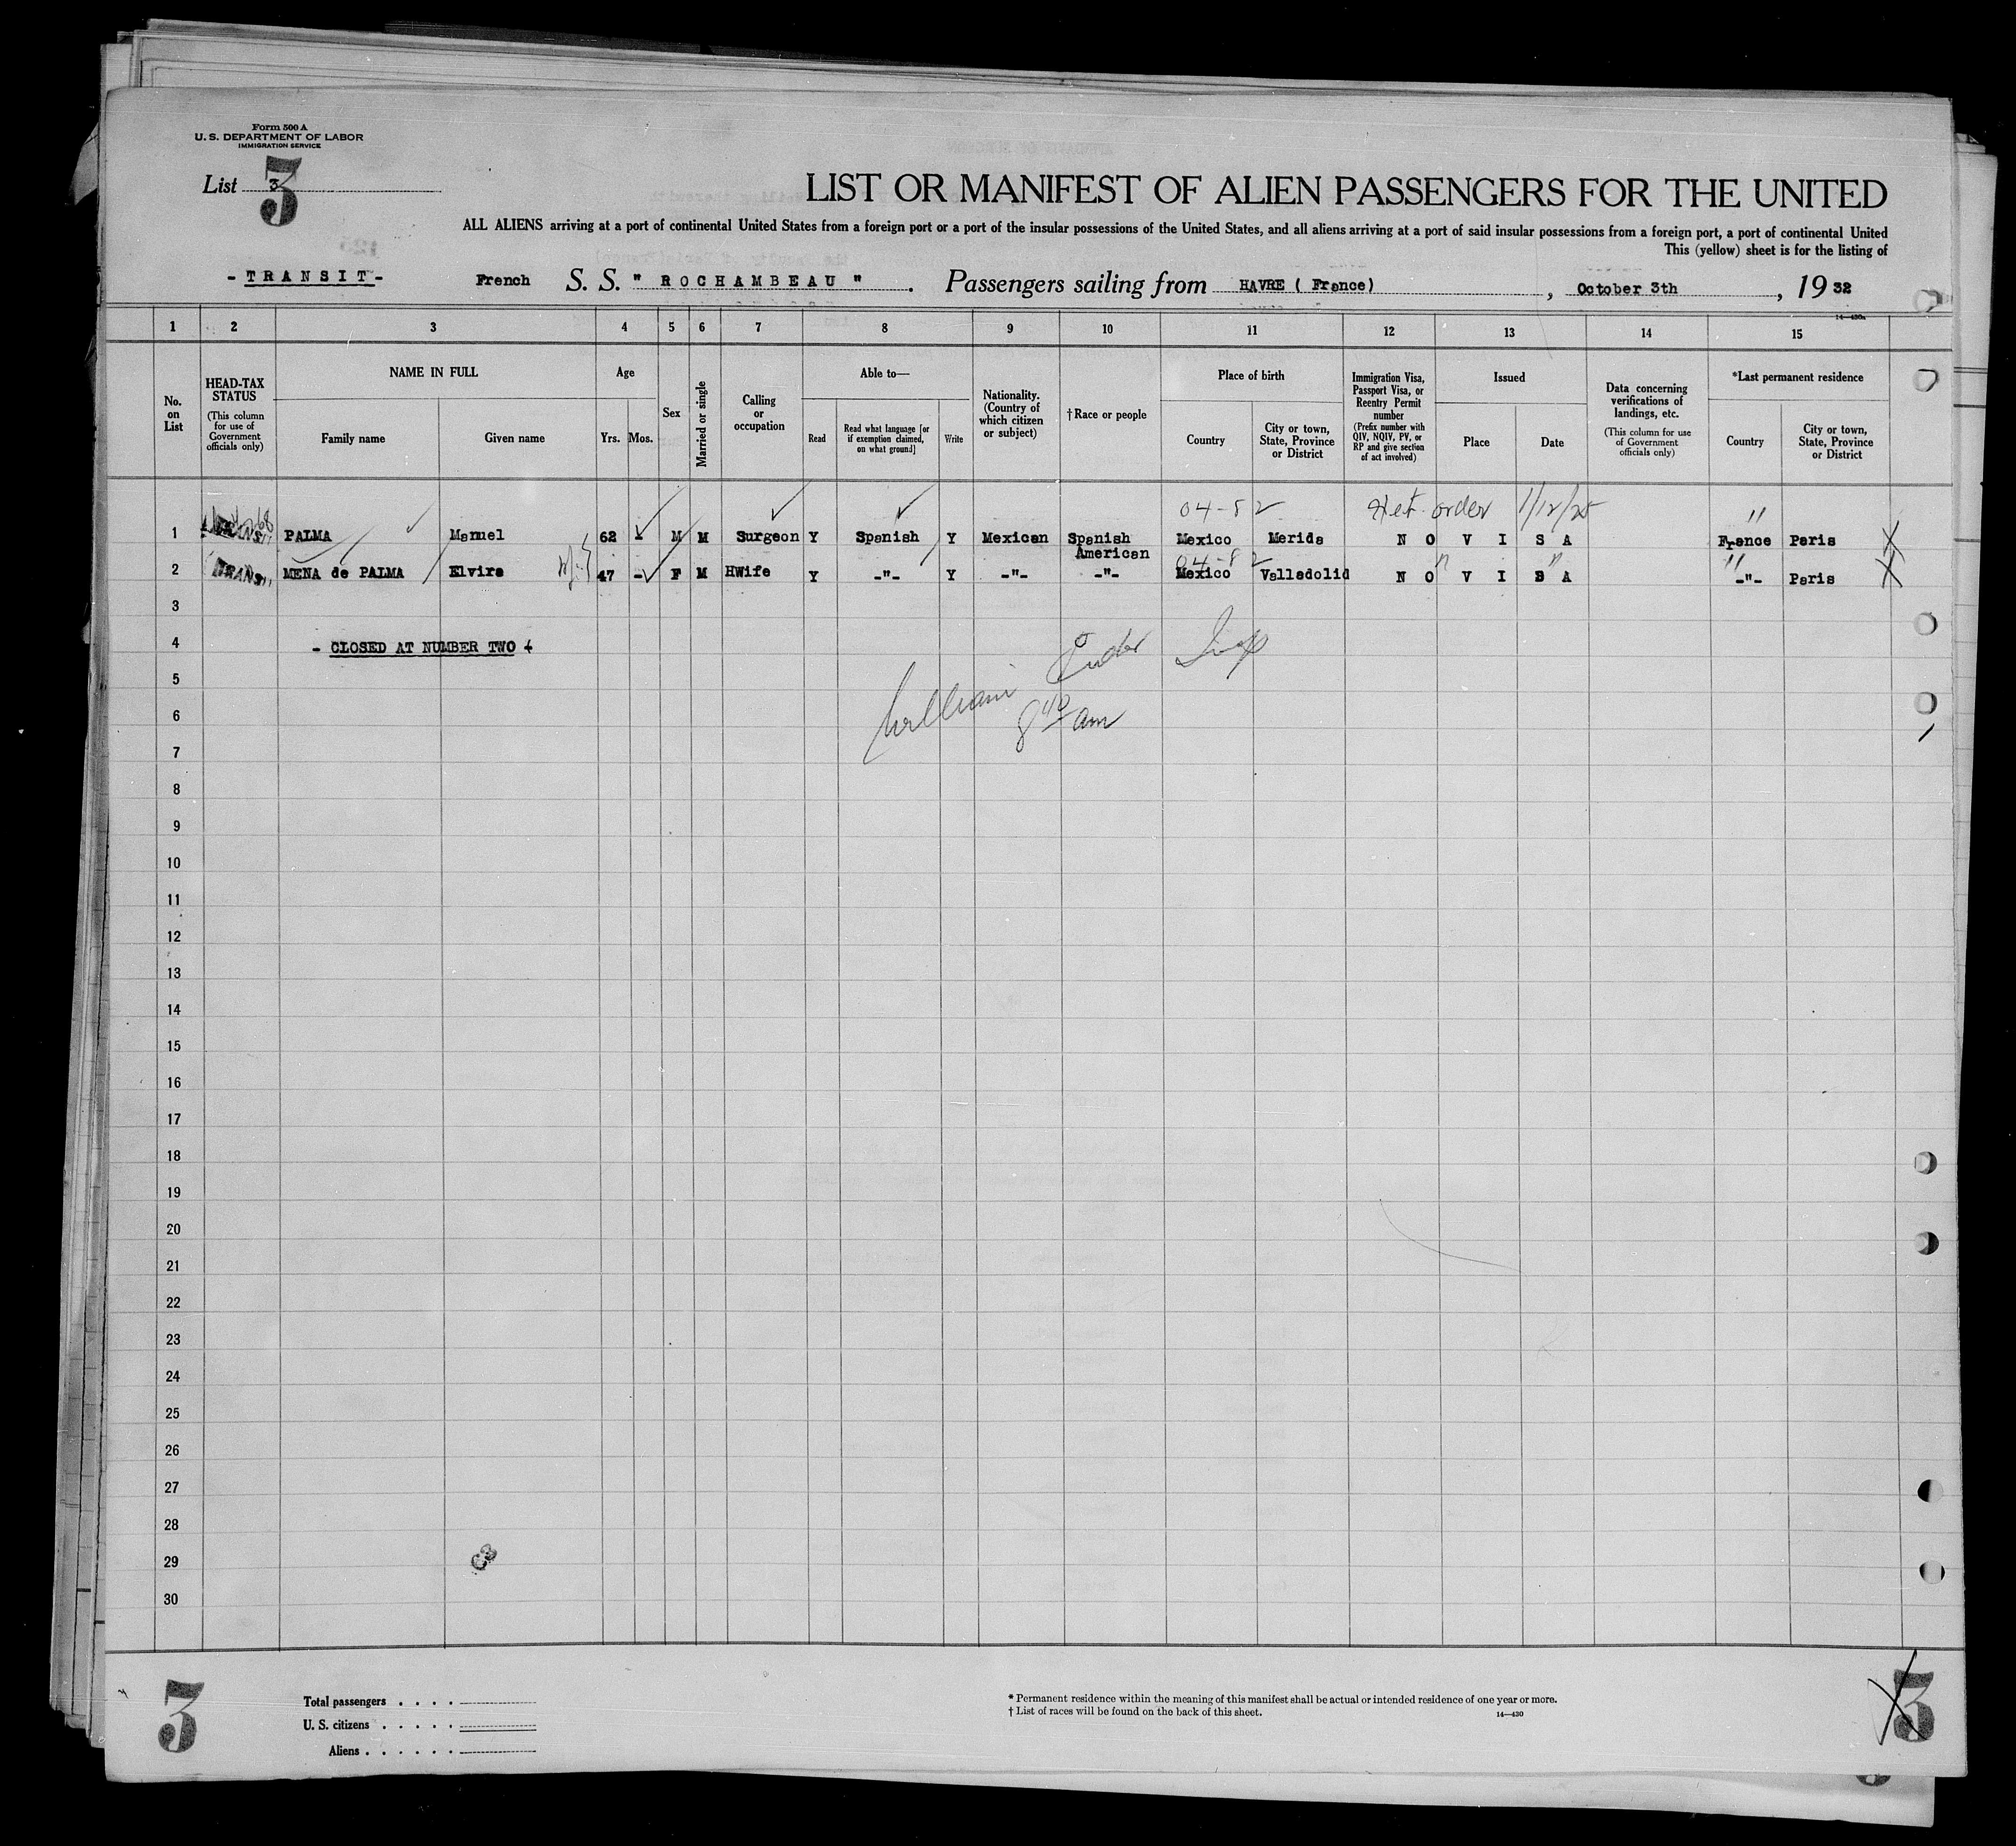 Form 500 A
U. S. DEPARTMENT OF LABOR
IMMIGRATION SERVICE
List 3
3
LIST OR MANIFEST OF ALIEN PASSENGERS FOR THE UNITED
ALL ALIENS arriving at a port of continental United States from a foreign port or a port of the insular possessions of the United States, and all aliens arriving at a port of said insular possessions from a foreign port, a port of continental United
This (yellow) sheet is for the listing of
- TRANSIT - French S. S. " ROCHAMBEAU " . Passengers sailing from HAVRE ( France) , October 3th , 19 32
14—430a
1 2 3 4 5 6 7 8 9 10 11 12 13 14 15
No. on List
HEAD-TAX STATUS
(This column for use of Government officials only)
NAME IN FULL
Family name
Given name
Age
Yrs. Mos.
Sex
Married or single
Calling or occupation
Able to—
Read
Read what language [or if exemption claimed, on what ground]
Write
Nationality. (Country of which citizen or subject)
† Race or people
Place of birth
Country
City or town, State, Province or District
Immigration Visa, Passport Visa, or Reentry Permit number
(Prefix number with QIV, NQIV, PV, or RP and give section of act involved)
Issued
Place
Date
Data concerning verifications of landings, etc.
(This column for use of Government officials only)
*Last permanent residence
Country
City or town, State, Province or District
04-82 order 1/12/25 "
1 PALMA Manuel 62 - M M Surgeon Y Spanish Y Mexican Spanish American Mexico Merida N O V I S A France Paris
04-82 " " "
2 MENA de PALMA Elvira 47 - F M HWife Y -"- Y -"- -"- Mexico Valladolid N O V I S A -"- Paris
3
4 - CLOSED AT NUMBER TWO -
William Insp
5
6 8 40 am
7
8
9
10
11
12
13
14
15
16
17
18
19
20
21
22
23
24
25
26
27
28
29
30
3
Total passengers . . . .
U. S. citizens . . . . .
Aliens . . . . . .
* Permanent residence within the meaning of this manifest shall be actual or intended residence of one year or more.
† List of races will be found on the back of this sheet.
14—430
3